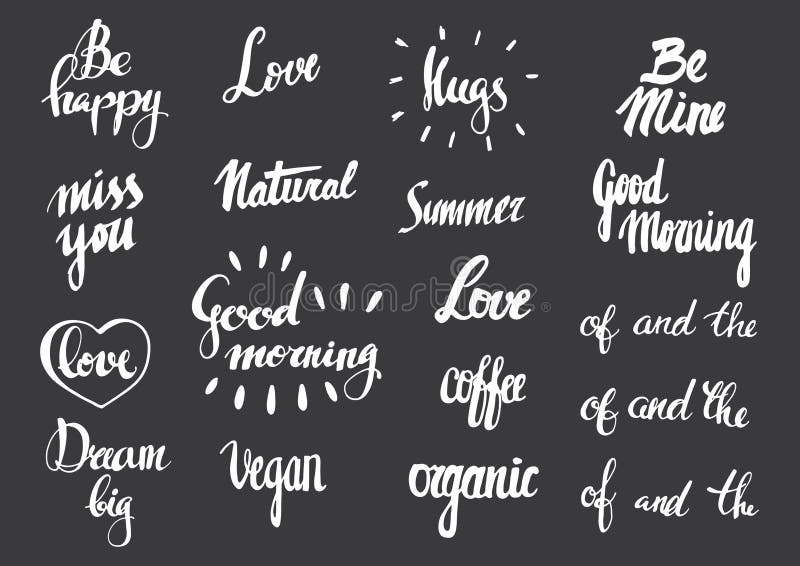 Be
happy
Love
Hugs
Be
Mine
miss
you
Natural
Summer
Good
Morning
Good
morning
Love
of and the
love
coffee
of and the
Dream
big
vegan
organic
of and the
dreamstime